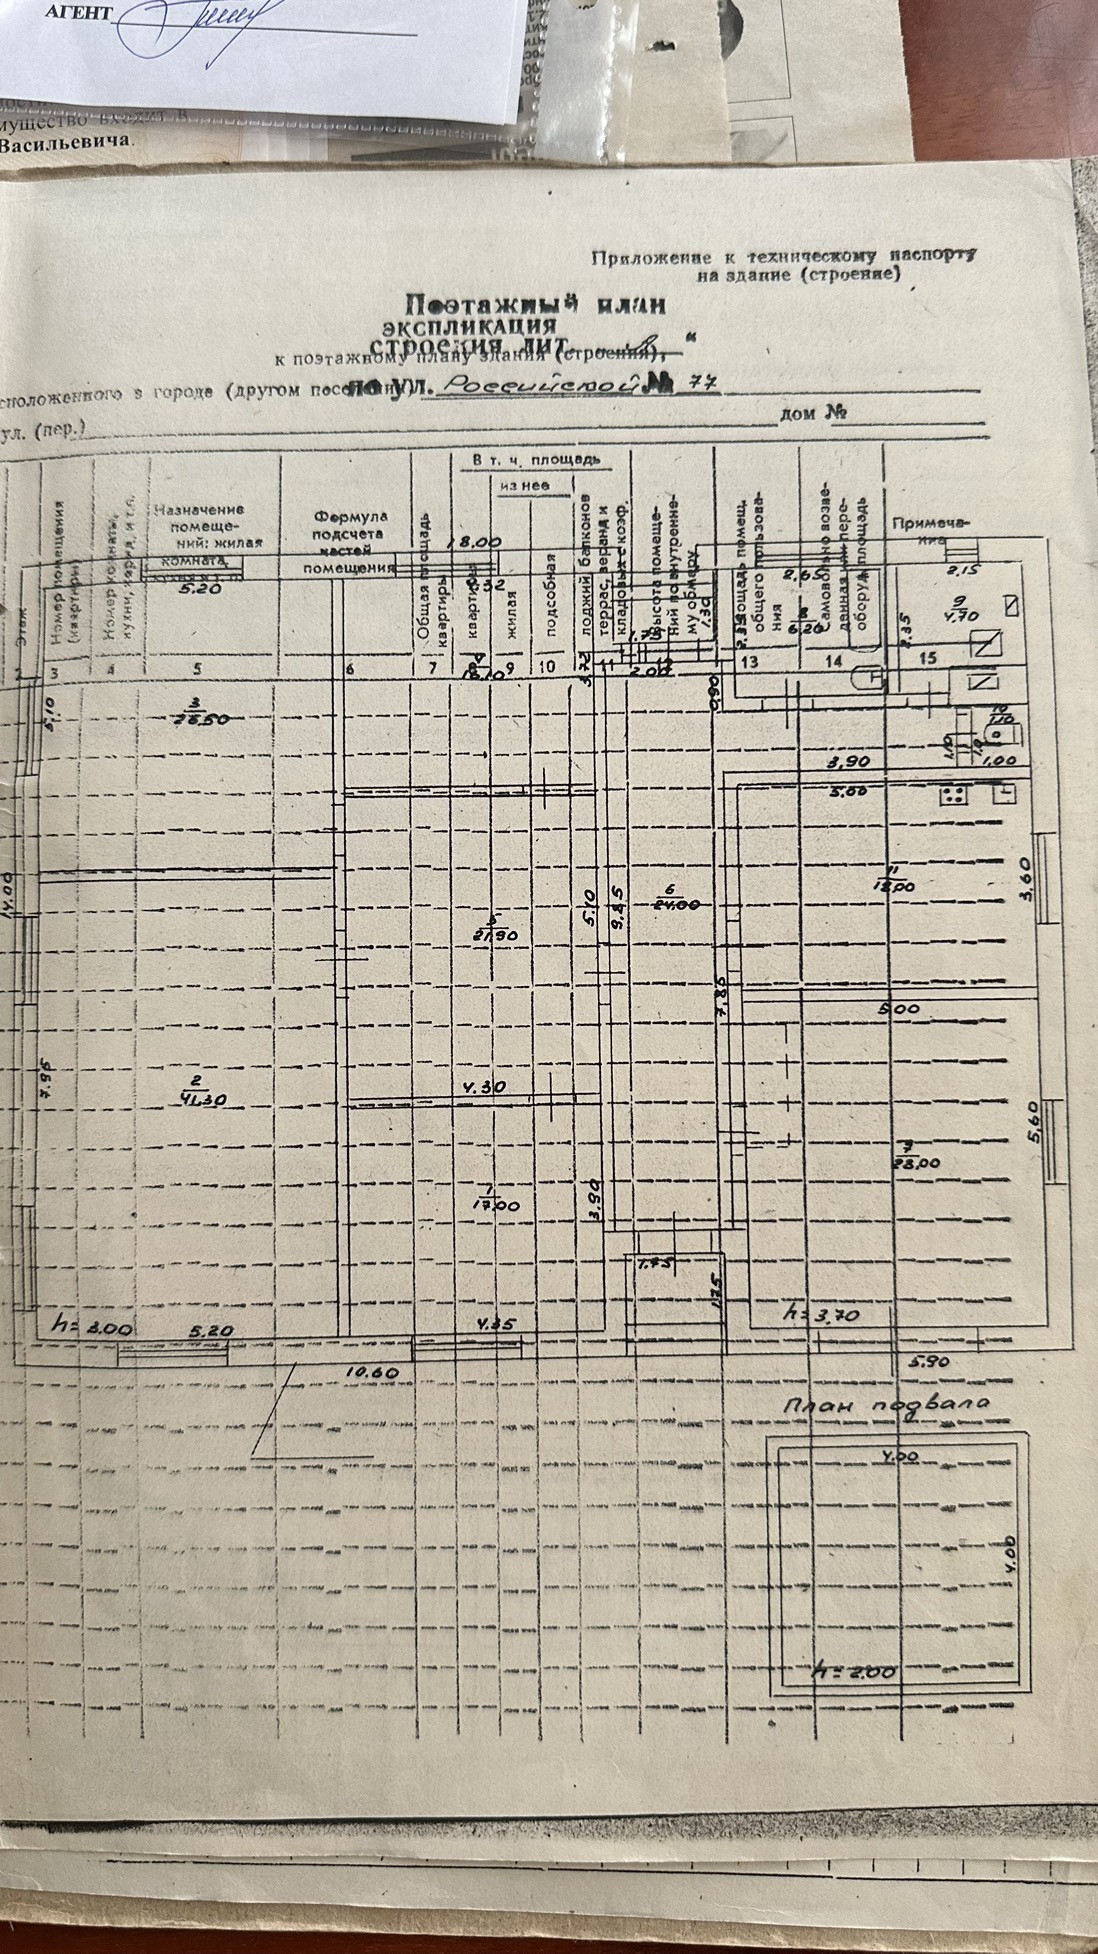 АГЕНТ
мущество входит в
Васильевича.
Приложение к техническому паспорту
на здание (строение)
Поэтажный план
ЭКСПЛИКАЦИЯ
строения лит.
к поэтажному плану здания (строения),
по ул. Российской № 77
сположенного в городе (другом
ул. (пер.) дом №
В т. ч. площадь
из нее
Этаж
Номер помещения (квартиры)
Номер комнаты, кухни, и т.п.
Назначение помеще-
ний: жилая
комната,
кухня и т. п.
Формула
подсчета
частей
помещения
Общая площадь квартиры
квартиры
жилая
подсобная
лоджий балконов
террас, веранд и
кладовых с коэф.
Высота помеще-
ний по внутренне-
му обмеру
Площадь помещ.
общего пользова-
ния
Самовольно возве-
денная или пере-
оборуд. площадь
Примеча-
ние
2 3 4 5 6 7 8 9 10 11 12 13 14 15
18.00
5.20
4.32
2.65
2,15
9
4.70
8
6.20
2.35
2.35
1.30
4
18.10
3.72
2.00
0.90
3
26.50
5,10
10
1.10
1.10
1.00
3,90
5.00
14.00
11
18,00
3,60
5
21.90
5.10
9.85
6
24.00
7.85
5.00
7.95
2
41.30
4.30
7
28,00
5,60
1
17.00
3.90
1.75
1.75
h= 3.00
5.20
4.35
h= 3,70
10.60
5.90
План подвала
4.00
4.00
h= 2.00